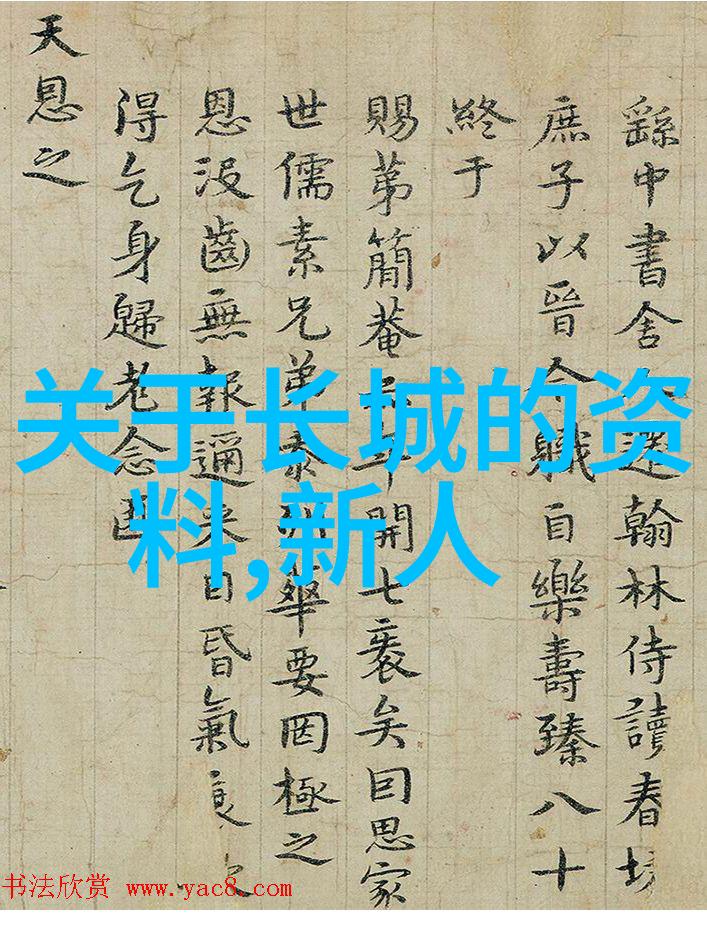 繇中書舍人遷翰林侍讀春坊
庶子以晉今職自樂壽臻八十
終于
賜第簡菴兄年開七袠矣囙思家
世儒素兄弟忝列華要罔極之
恩沒齒無報邇来目昏氣衰
得乞身歸老念
天恩之
关于长城的资
料,新人
书法欣赏 www.yac8.com